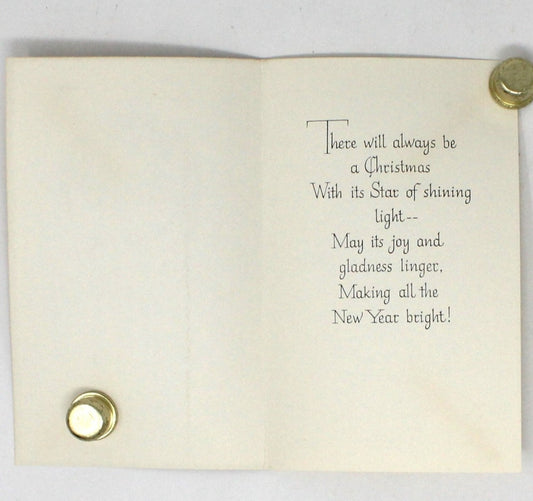 There will always be
a Christmas
With its Star of shining
light--
May its joy and
gladness linger,
Making all the
New Year bright!